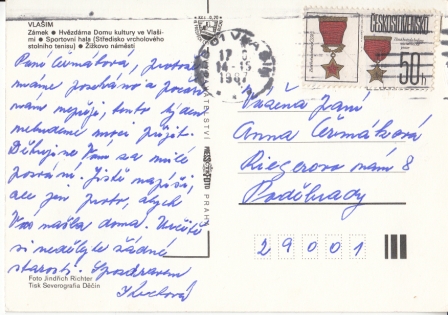 VLAŠIM
Zámek ● Hvězdárna Domu kultury ve Vlaši-
mi ● Sportovní hala (Středisko vrcholového
stolního tenisu) ● Žižkovo náměstí
Paní Čermáková, protože
máme
nám nepřijí, tento týden
nebudeme moci přijít.
Děkujeme Vám za milé
pozvání. Jistě napíši,
ale jen proto, abych
Vás našla doma. Určitě
si nedělejte žádné
starosti. S pozdravem
Foto Jindřich Richter
Tisk Severografia Děčín
PRAHA
17. 8
14-15
1987
ČESKOSLOVENSKO
50h
Vážená paní
Anna Čermáková
Riegerovo nám 8
Poděbrady
29001